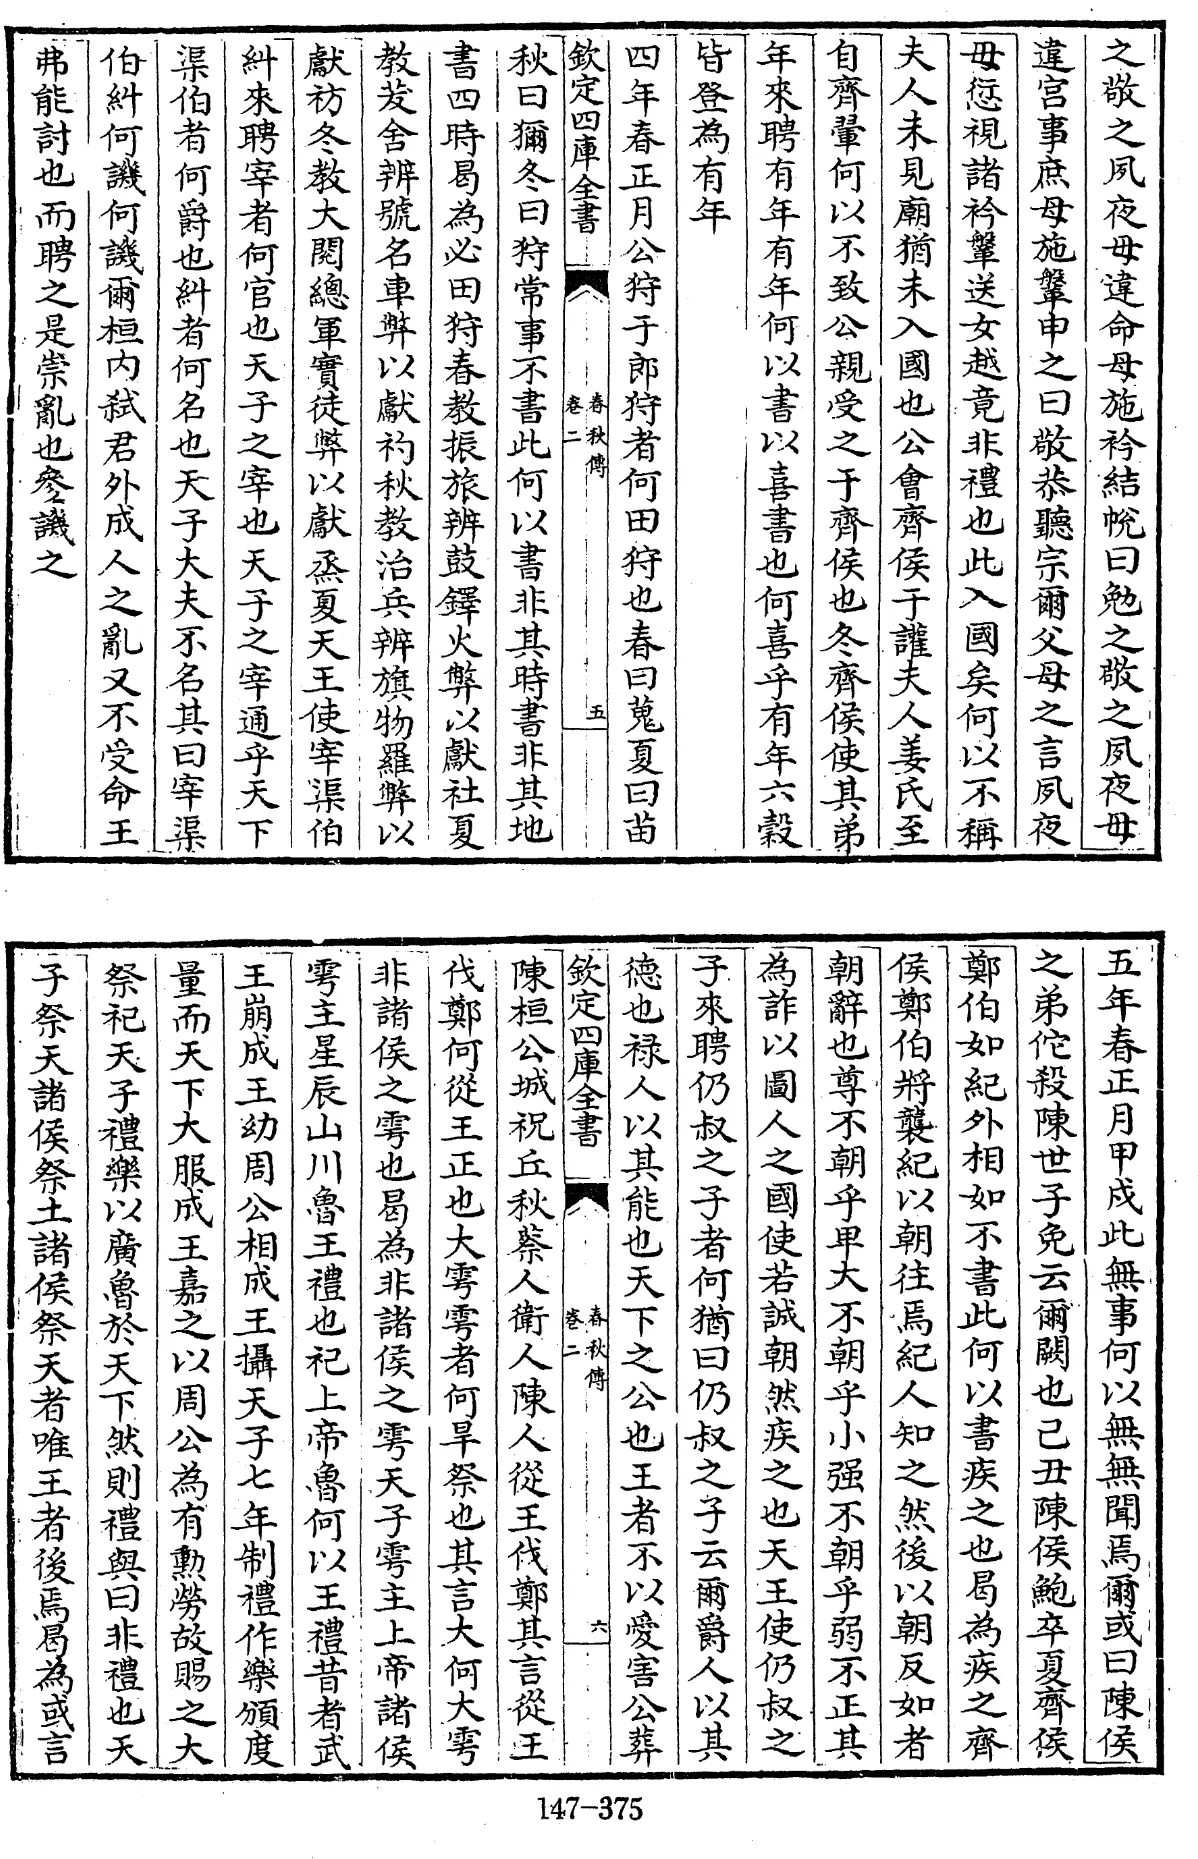 之敬之夙夜毋違命母施衿結帨曰勉之敬之夙夜毋
違宮事庶母施鞶申之曰敬恭聽宗爾父母之言夙夜
毋愆視諸衿鞶送女越竟非禮也此入國矣何以不稱
夫人未見廟猶未入國也公會齊侯于讙夫人姜氏至
自齊翬何以不致公親受之于齊侯也冬齊侯使其弟
年來聘有年有年何以書以喜書也何喜乎有年六穀
皆登為有年
四年春正月公狩于郎狩者何田狩也春曰蒐夏曰苗
欽定四庫全書
春秋傳
卷二
五
秋曰獮冬曰狩常事不書此何以書非其時書非其地
書四時曷為必田狩春教振旅辨鼓鐸火弊以獻社夏
教茇舍辨號名車弊以獻礿秋教治兵辨旗物羅弊以
獻祊冬教大閱總軍實徒弊以獻烝夏天王使宰渠伯
糾來聘宰者何官也天子之宰也天子之宰通乎天下
渠伯者何爵也糾者何名也天子大夫不名其曰宰渠
伯糾何譏何譏爾桓內弑君外成人之亂又不受命王
弗能討也而聘之是崇亂也參譏之
五年春正月甲戍此無事何以無無聞焉爾或曰陳侯
之弟佗殺陳世子免云爾闕也己丑陳侯鮑卒夏齊侯
鄭伯如紀外相如不書此何以書疾之也曷為疾之齊
侯鄭伯將襲紀以朝往焉紀人知之然後以朝反如者
朝辭也尊不朝乎卑大不朝乎小强不朝乎弱不正其
為詐以圖人之國使若誠朝然疾之也天王使仍叔之
子來聘仍叔之子者何猶曰仍叔之子云爾爵人以其
德也禄人以其能也天下之公也王者不以愛害公葬
欽定四庫全書
春秋傳
卷二
六
陳桓公城祝丘秋蔡人衛人陳人從王伐鄭其言從王
伐鄭何從王正也大雩雩者何旱祭也其言大何大雩
非諸侯之雩也曷為非諸侯之雩天子雩主上帝諸侯
雩主星辰山川魯王禮也祀上帝魯何以王禮昔者武
王崩成王幼周公相成王攝天子七年制禮作樂頒度
量而天下大服成王嘉之以周公為有勲勞故賜之大
祭祀天子禮樂以廣魯於天下然則禮與曰非禮也天
子祭天諸侯祭土諸侯祭天者唯王者後焉曷為或言
147-375